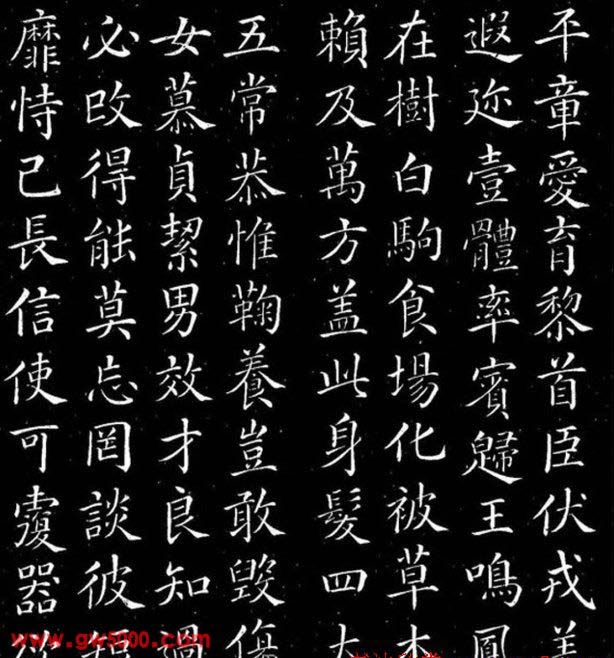 平章愛育黎首臣伏戎羌
遐迩壹體率賓歸王鳴鳳
在樹白駒食場化被草木
賴及萬方盖此身髮四大
五常恭惟鞠養豈敢毀傷
女慕貞絜男效才良知過
必改得能莫忘罔談彼
靡恃己長信使可覆器
www.gw5000.com